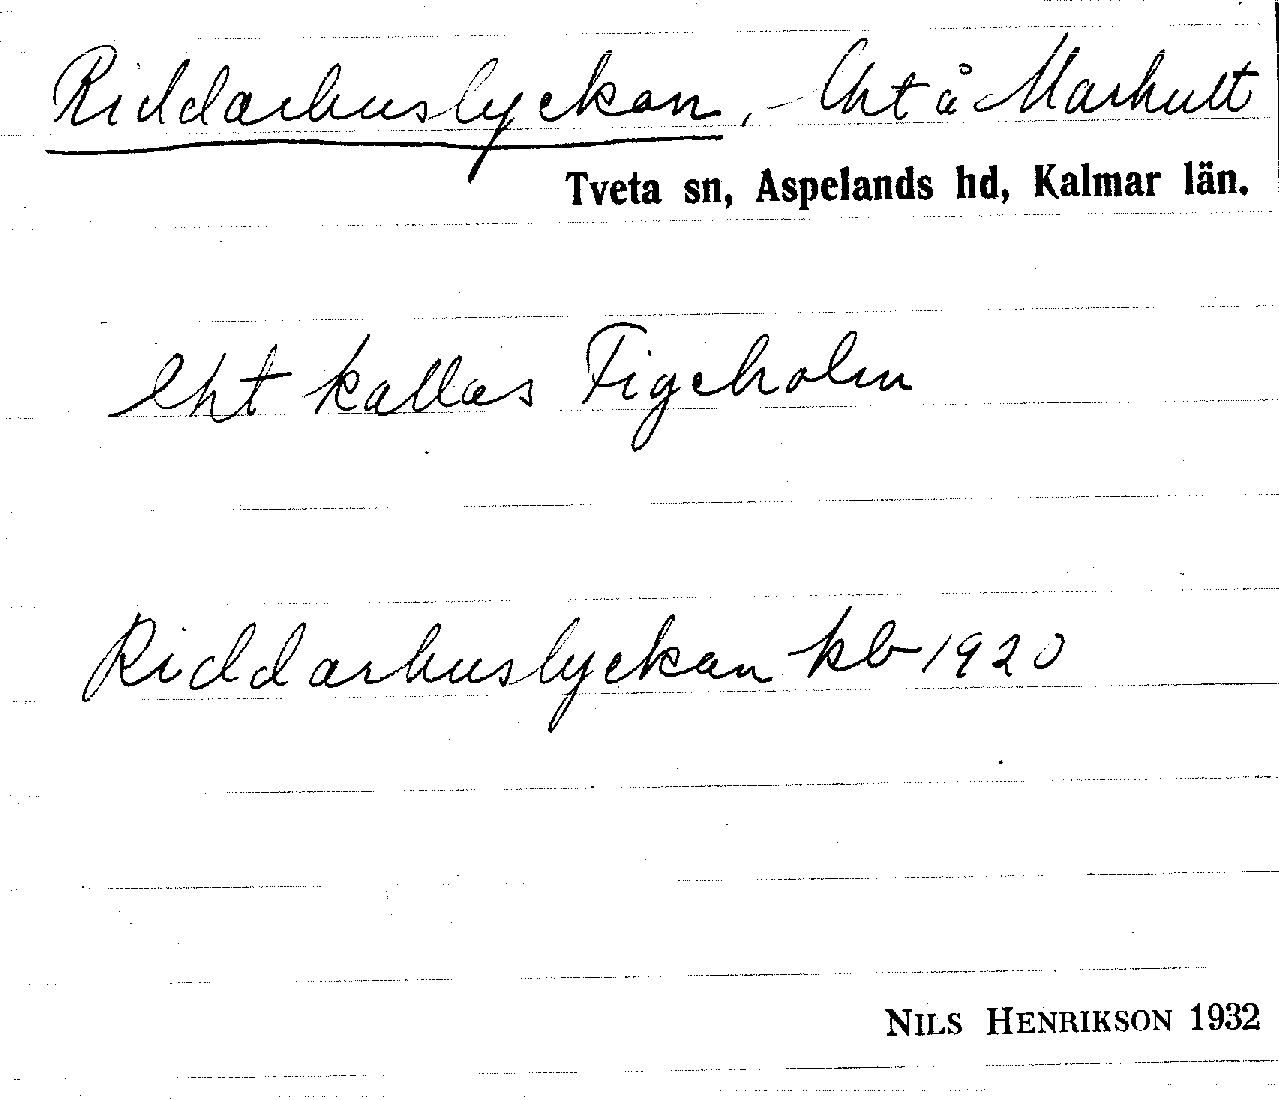 Riddarhuslyckan, - Lht å Markult
Tveta sn, Aspelands hd, Kalmar län.
Lht kallas Figeholm
Riddarhuslyckan kb 1920
NILS HENRIKSON 1932